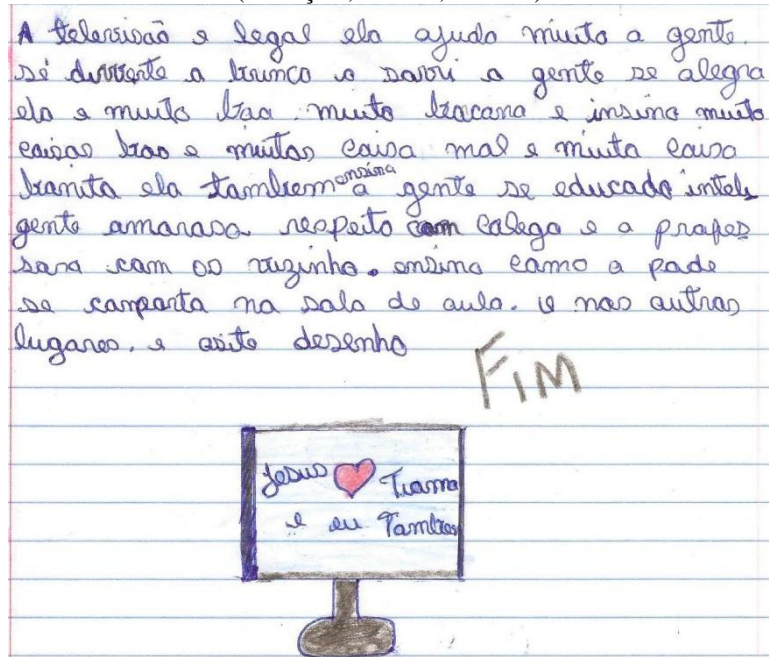 A televisão e legal ela ajuda muito a gente.
sé divirente a brinca a sorri a gente se alegra
ela e muito boa muito bacana e insina muita
coisas boas e muitas coisa mal e muita coisa
bonita ela tambem ensina a gente se educado inteli
gente amorosa respeito com colega e a profes
sora com os vizinho. ensina como a pode
se comporta na sala de aula. e nas outras
lugares. e asite desenho
FIM
Jesus Tiama
e eu Tambem